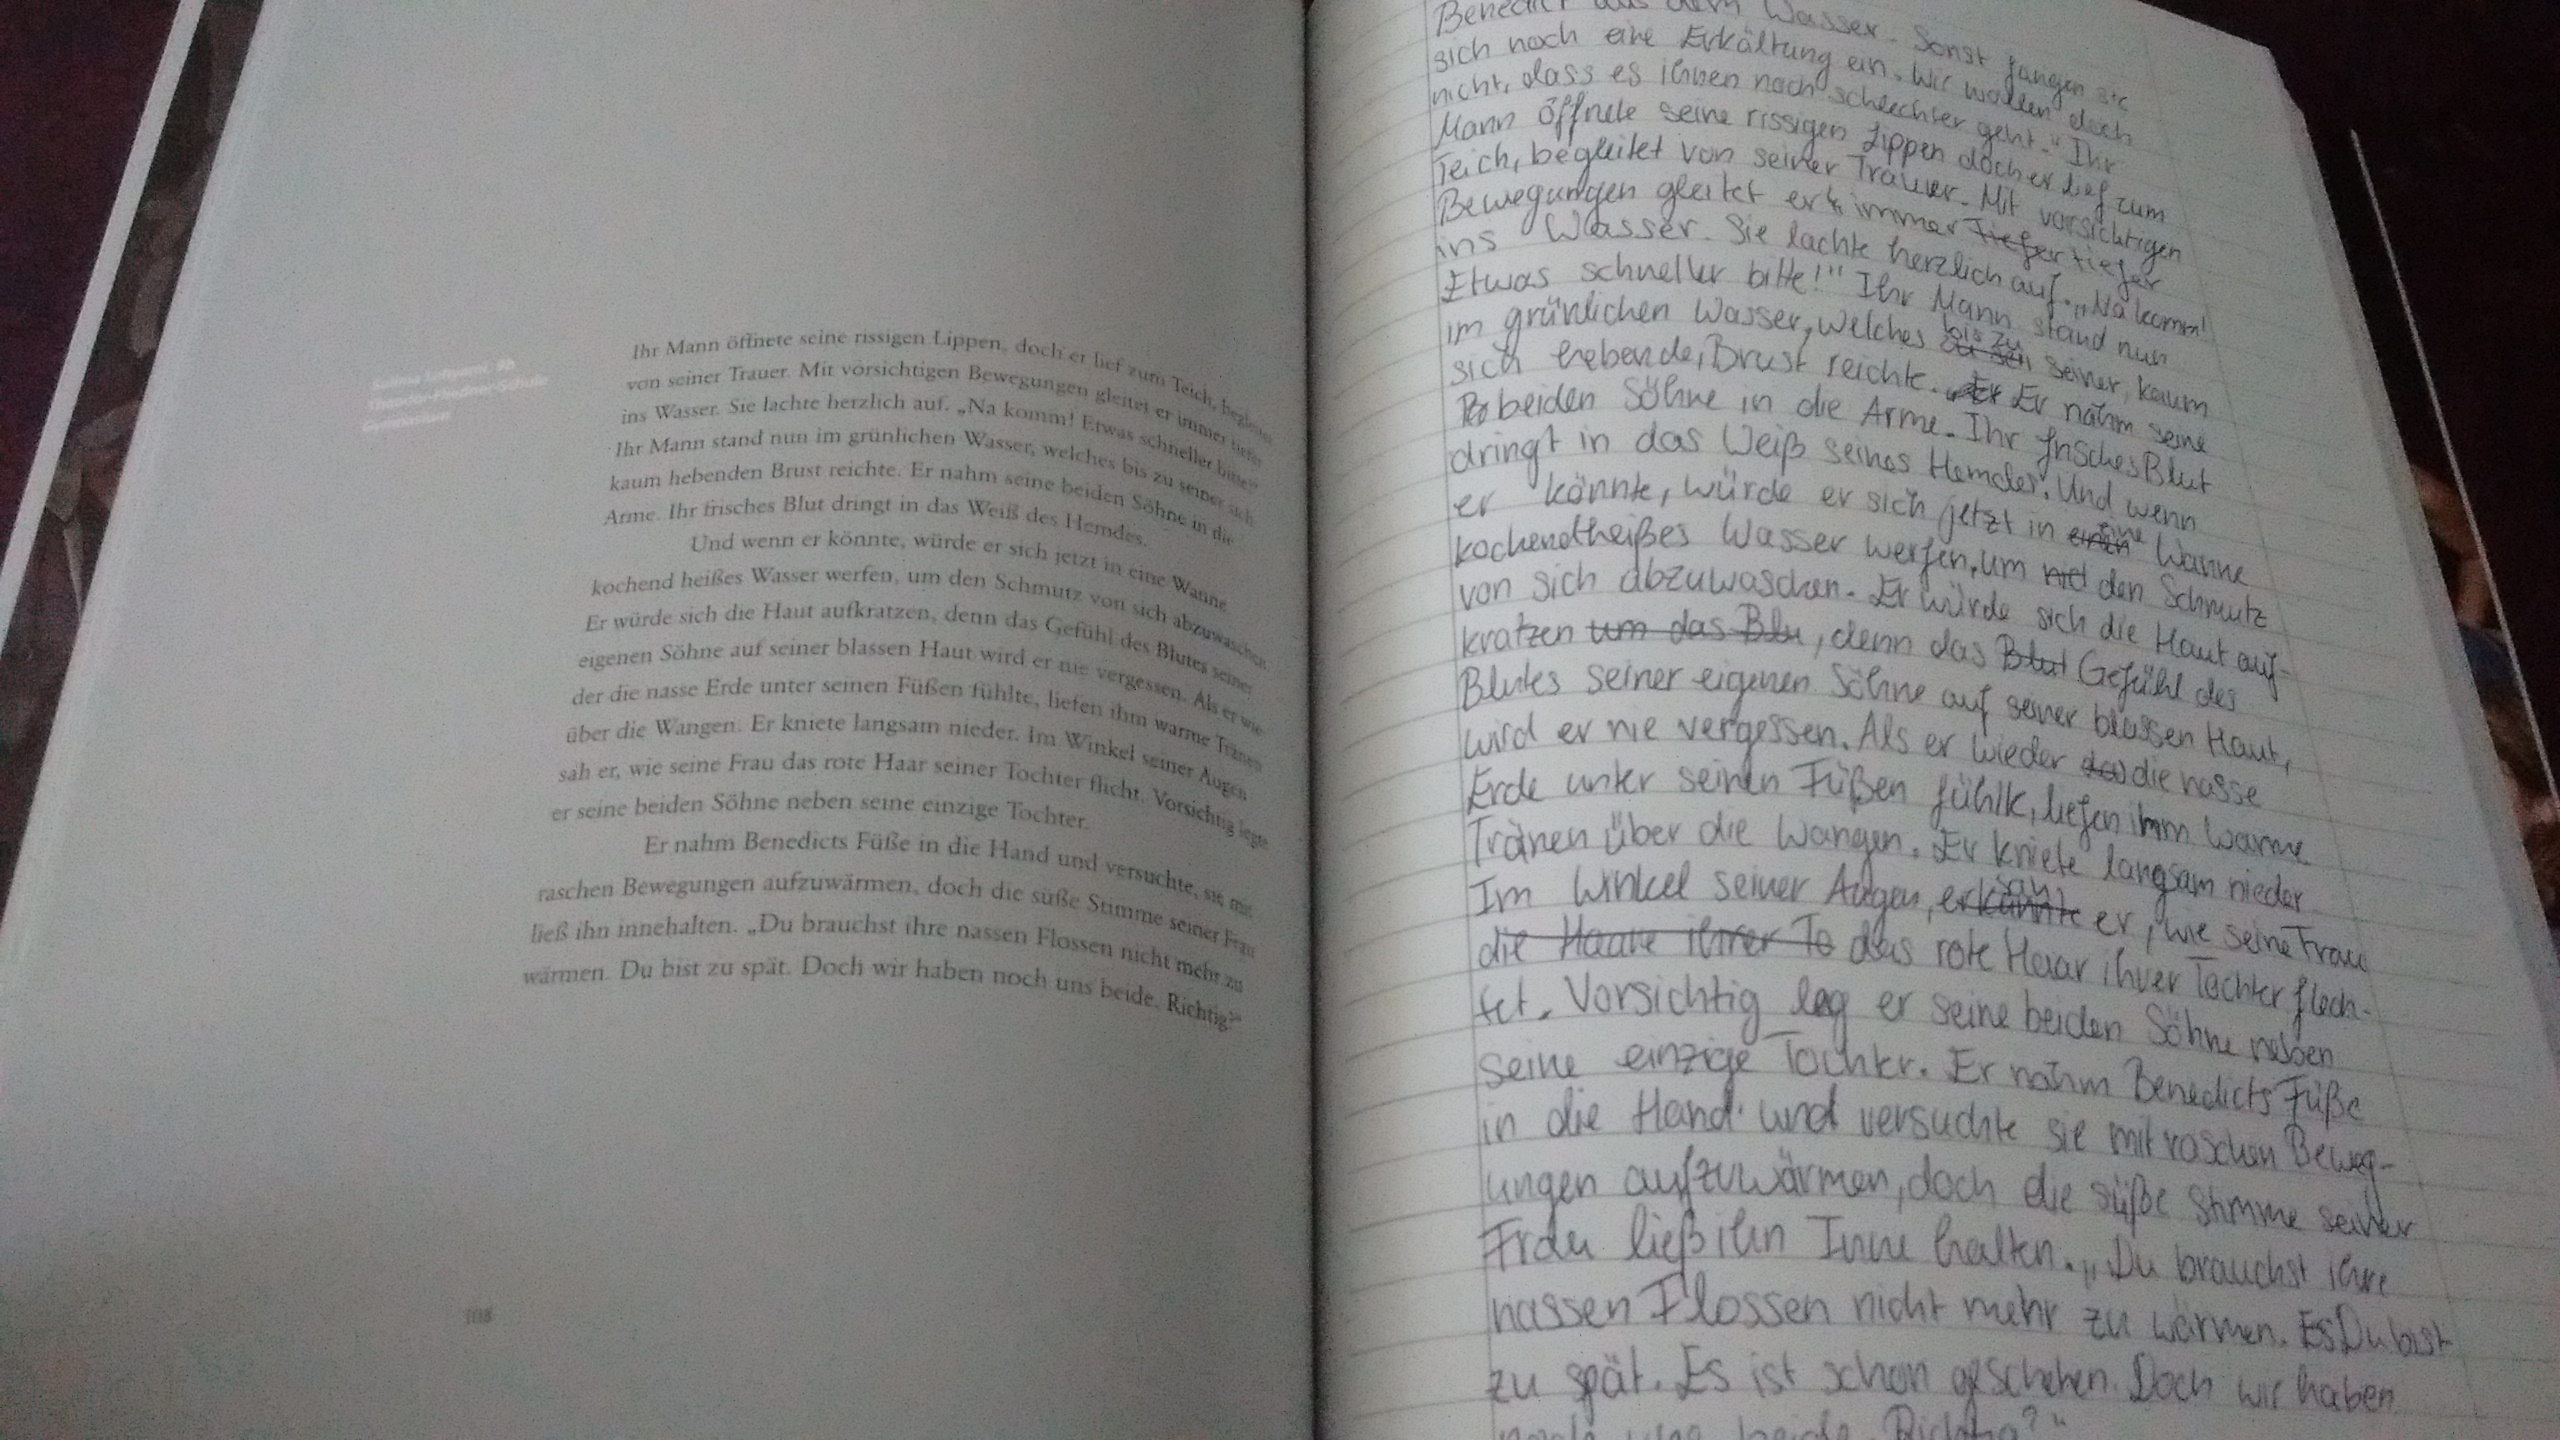 9b
Theodor-Fliedner-Schule
Gymnasium
Ihr Mann öffnete seine rissigen Lippen, doch er lief zum Teich, begleitet
von seiner Trauer. Mit vorsichtigen Bewegungen gleitet er immer tiefer
ins Wasser. Sie lachte herzlich auf. „Na komm! Etwas schneller bitte!“
Ihr Mann stand nun im grünlichen Wasser, welches bis zu seiner sich
kaum hebenden Brust reichte. Er nahm seine beiden Söhne in die
Arme. Ihr frisches Blut dringt in das Weiß des Hemdes.
Und wenn er könnte, würde er sich jetzt in eine Wanne
kochend heißes Wasser werfen, um den Schmutz von sich abzuwaschen.
Er würde sich die Haut aufkratzen, denn das Gefühl des Blutes seiner
eigenen Söhne auf seiner blassen Haut wird er nie vergessen. Als er wie-
der die nasse Erde unter seinen Füßen fühlte, liefen ihm warme Tränen
über die Wangen. Er kniete langsam nieder. Im Winkel seiner Augen
sah er, wie seine Frau das rote Haar seiner Tochter flicht. Vorsichtig legte
er seine beiden Söhne neben seine einzige Tochter.
Er nahm Benedicts Füße in die Hand und versuchte, sie mit
raschen Bewegungen aufzuwärmen, doch die süße Stimme seiner Frau
ließ ihn innehalten. „Du brauchst ihre nassen Flossen nicht mehr zu
wärmen. Du bist zu spät. Doch wir haben noch uns beide. Richtig?“
108
Benedict aus dem Wasser. Sonst fangen sie
sich noch eine Erkältung ein. Wir wollen doch
nicht, dass es ihnen noch schlechter geht.“ Ihr
Mann öffnete seine rissigen Lippen doch er lief zum
Teich, begleitet von seiner Trauer. Mit vorsichtigen
Bewegungen gleitet er immer tiefer tiefer
ins Wasser. Sie lachte herzlich auf. „Na komm!
Etwas schneller bitte!“ Ihr Mann stand nun
im grünlichen Wasser, welches bis zu seiner, kaum
sich hebende, Brust reichte. Er Er nahm seine
beiden Söhne in die Arme. Ihr frisches Blut
dringt in das Weiß seines Hemdes. Und wenn
er könnte, würde er sich jetzt in eine Wanne
kochendheißes Wasser werfen, um den Schmutz
von sich abzuwaschen. Er würde sich die Haut auf-
kratzen um das Blu, denn das Blut Gefühl des
Blutes seiner eigenen Söhne auf seiner blassen Haut,
wird er nie vergessen. Als er wieder das die nasse
Erde unter seinen Füßen fühlte, liefen ihm warme
Tränen über die Wangen. Er kniete langsam nieder
Im Winkel seiner Augen, erkannte sah er, wie seine Frau
die Haare ihrer To das rote Haar ihrer Tochter flech-
tet. Vorsichtig leg er seine beiden Söhne neben
seine einzige Tochter. Er nahm Benedicts Füße
in die Hand und versuchte sie mit raschen Beweg-
ungen aufzuwärmen, doch die süße Stimme seiner
Frau ließ ihn Inne halten. „Du brauchst ihre
nassen Flossen nicht mehr zu wärmen. Es Du bist
zu spät. Es ist schon geschehen. Doch wir haben
noch uns beide. Richtig?“